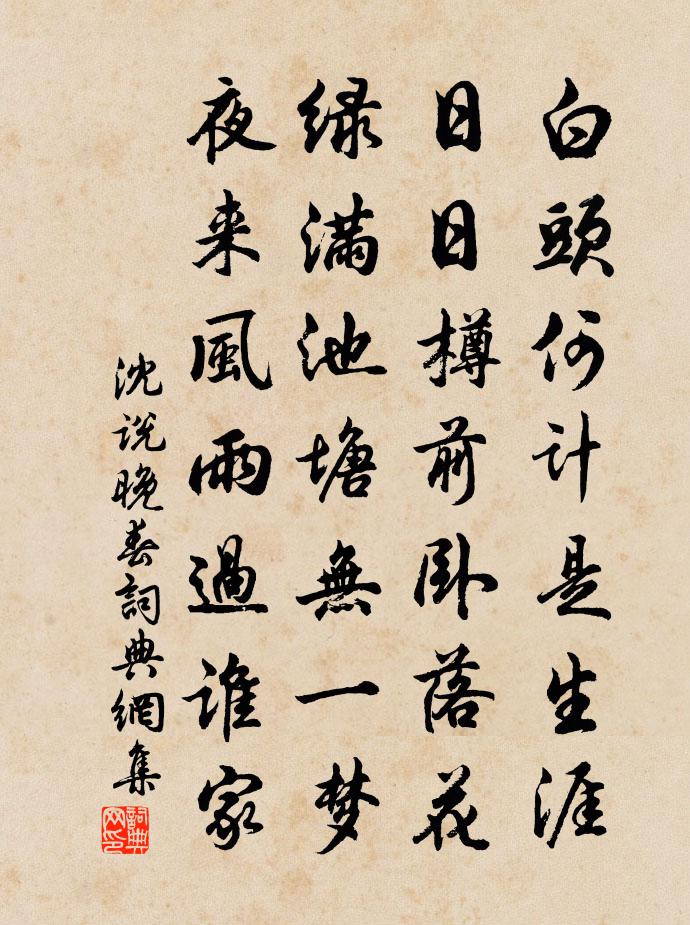 白頭何计是生涯
日日樽前卧落花
緑滿池塘無一梦
夜来風雨過谁家
沈说晚春詞典網集
詞典网印